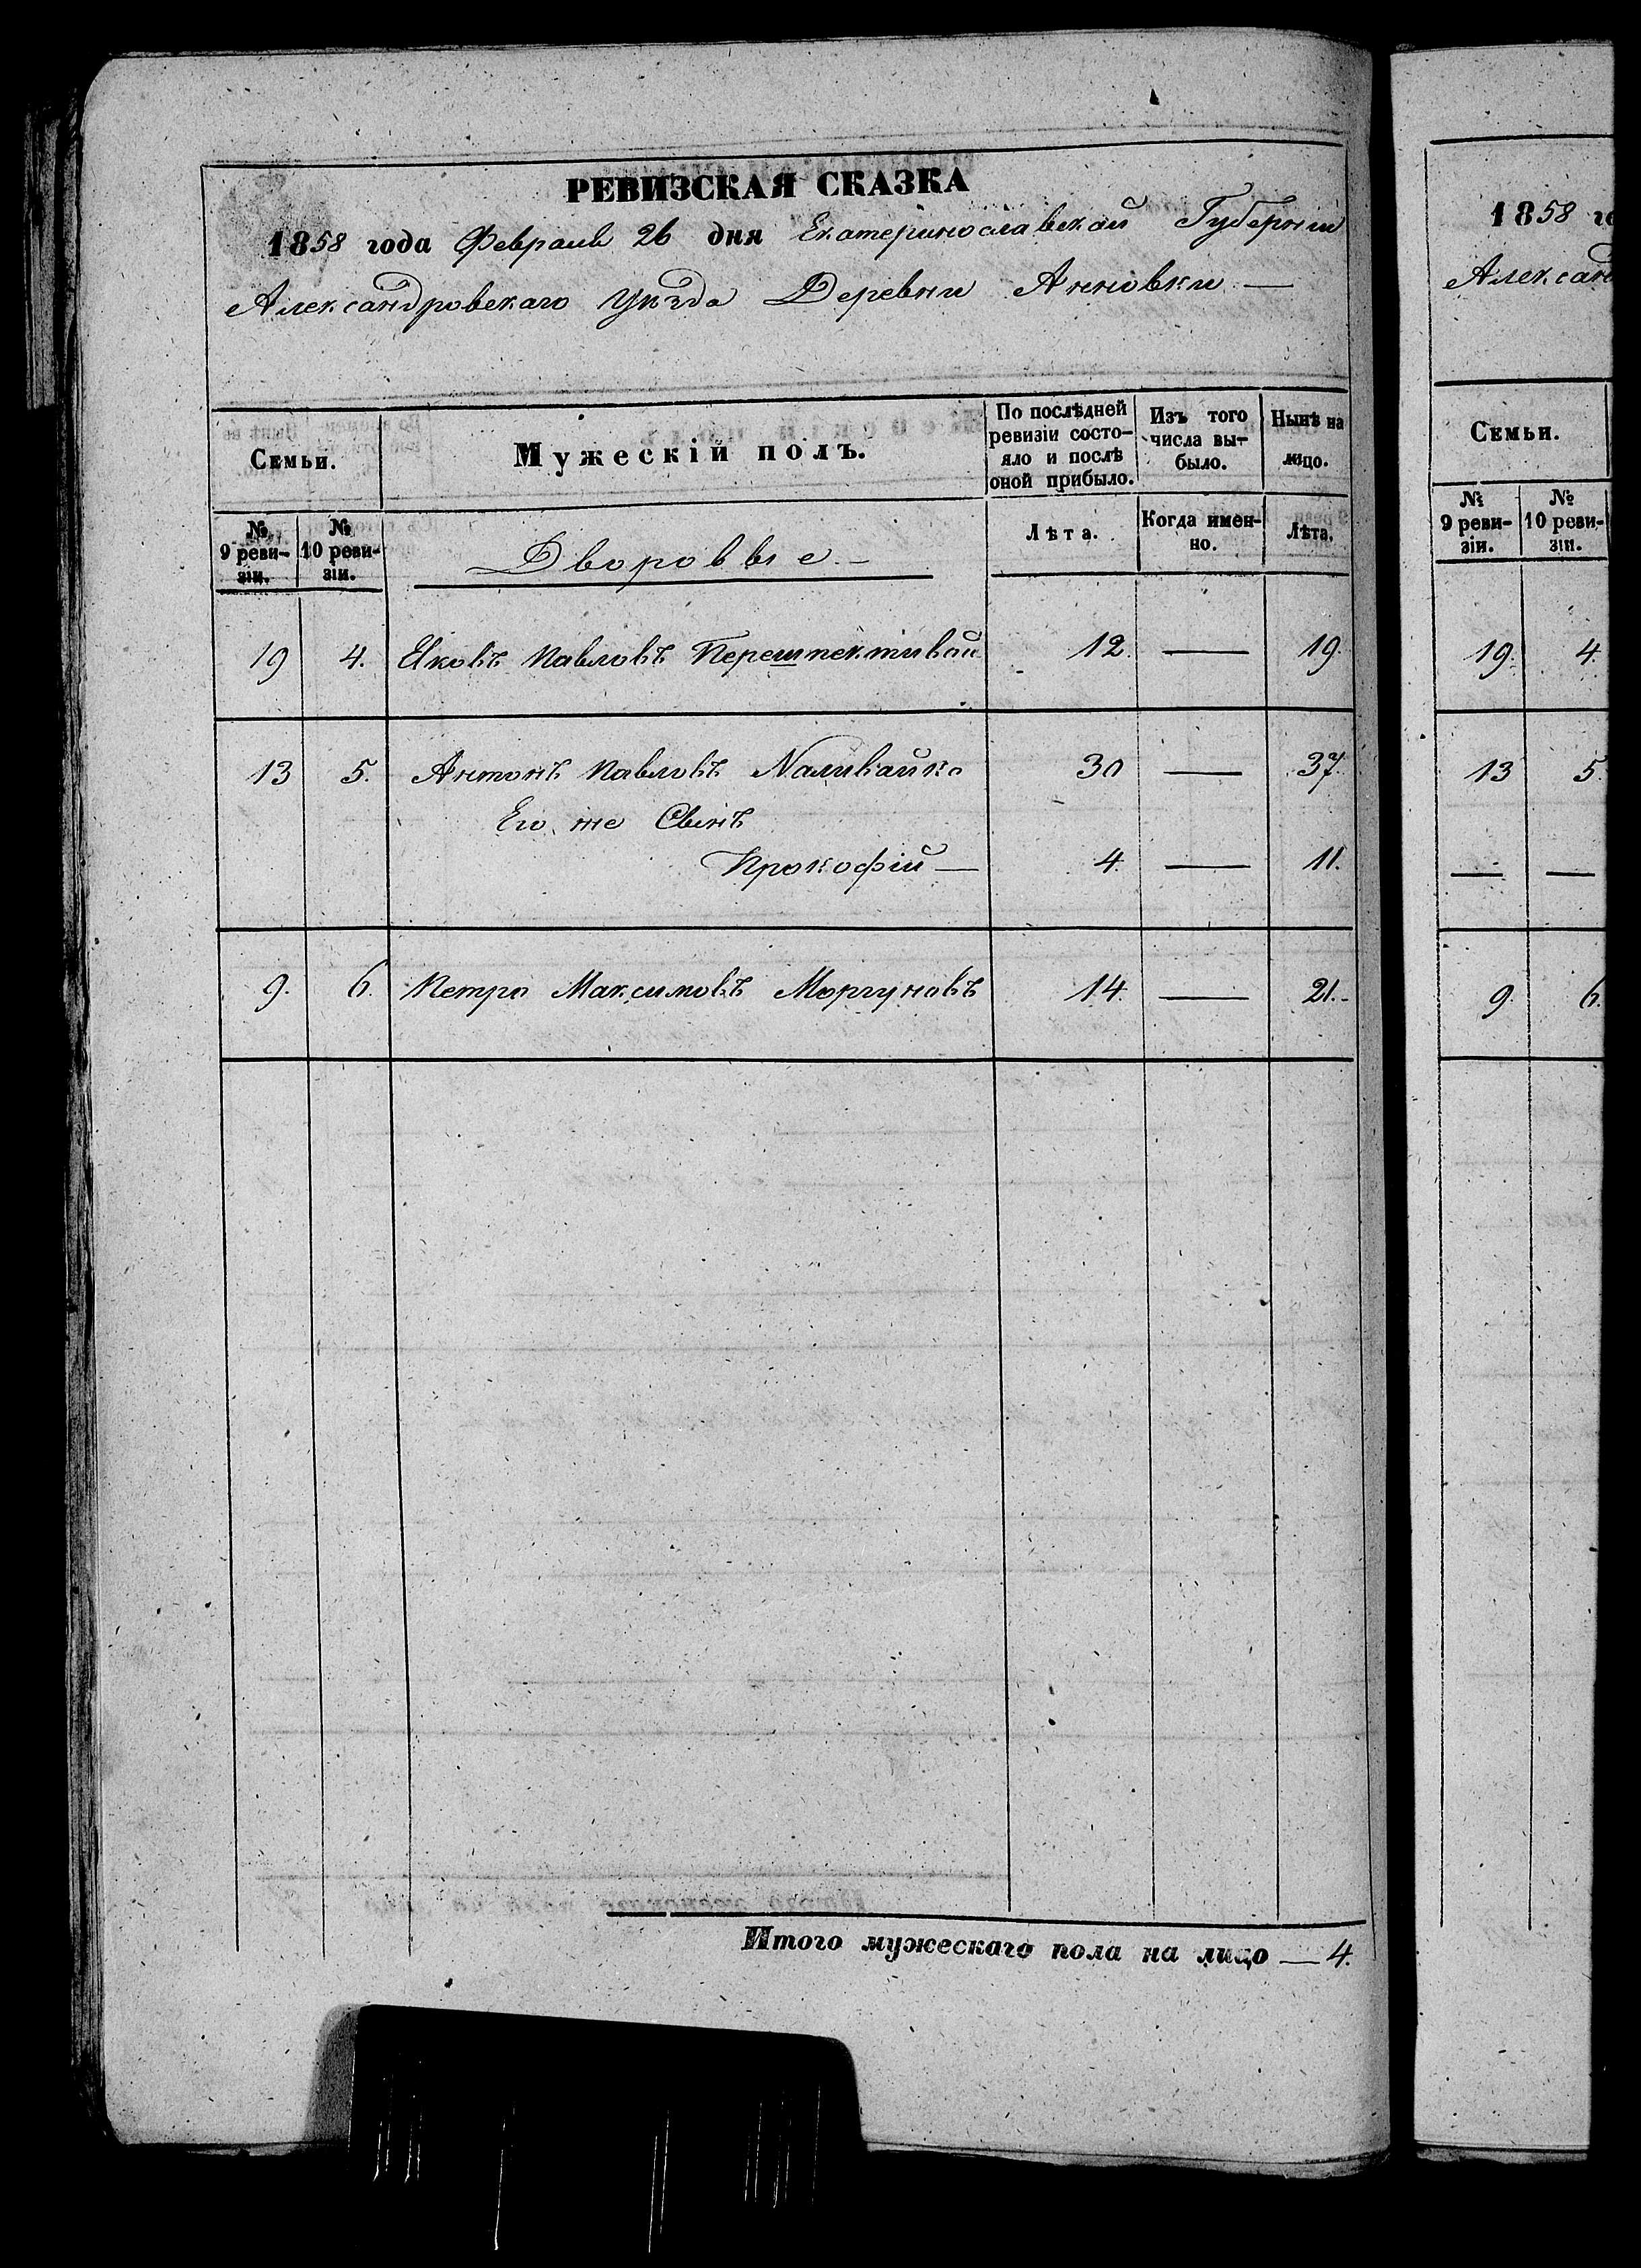 РЕВИЗСКАЯ СКАЗКА
1858 года Февраля 26 дня Екатеринославской Губерніи
Александровскаго Уѣзда Деревни Анновки —
Семьи.
Мужескій полъ.
По послѣдней ревизіи состояло и послѣ оной прибыло.
Изъ того числа выбыло.
Нынѣ на лицо.
№ 9 ревизіи.
№ 10 ревизіи.
Дворовые. —
Лѣта.
Когда именно.
Лѣта.
19 4. Яковъ Павловъ Перешпективой 12. — 19.
13 5. Антонъ Павловъ Наливайко 30 — 37.
Его же Сынъ
Прокофій — 4. — 11.
9. 6. Петро Максимовъ Моргуновъ 14. — 21. -
Итого мужескаго пола на лицо — 4.
1858
Семьи.
№ 9 ревизіи.
№ 10 ревизіи.
19. 4.
13 5.
— —
9. 6.